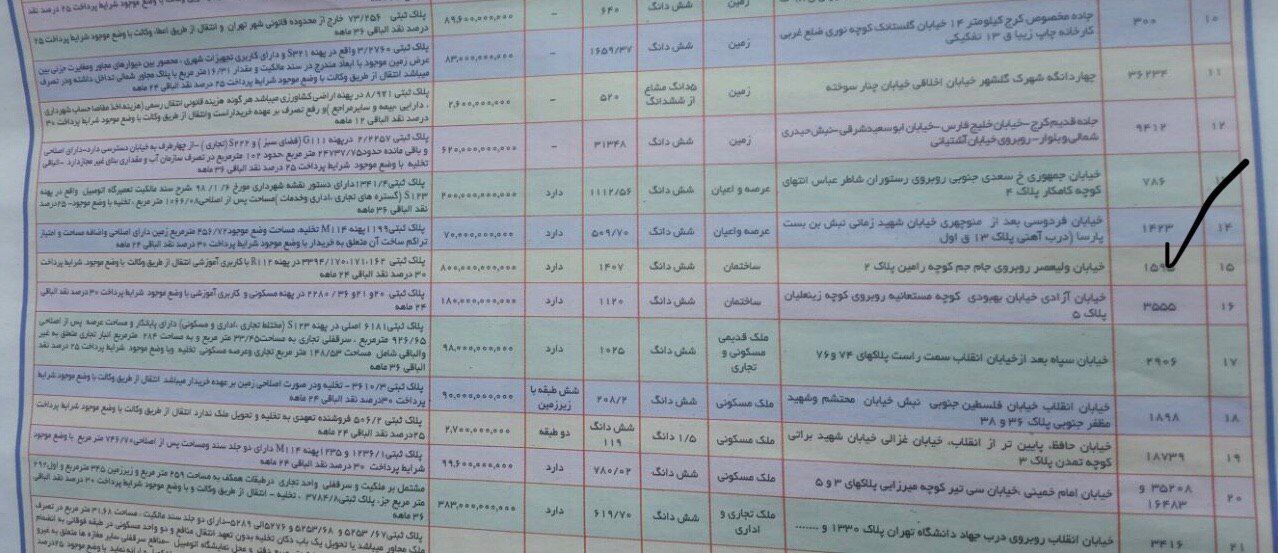 ۶۴۰
زمین
شش دانگ
۸۹,۶۰۰,۰۰۰,۰۰۰
پلاک ثبتی ۷۳/۲۵۶ خارج از محدوده قانونی شهر تهران و انتقال از طریق اعطا وکالت با وضع موجود شرایط پرداخت ۲۵
درصد نقد الباقی ۳۶ ماهه
۱۰
۳۰۰
جاده مخصوص کرج کیلومتر ۱۴ خیابان گلستانک کوچه نوری ضلع غربی
کارخانه چاپ زیبا ق ۱۳ تفکیکی
زمین
شش دانگ
۱۶۵۹/۳۷
-
۸۳,۰۰۰,۰۰۰,۰۰۰
پلاک ثبتی ۳/۲۷۶۰ واقع در پهنه S۳۲۱ و دارای کاربری تجهیزات شهری ، محصور بین دیوارهای مجاور ومغایرت جزئی بین
عرض زمین موجود با ابعاد مندرج در سند مالکیت و مقدار ۱۶/۳۱متر مربع با پلاک مجاور شمالی تداخل داشته ودر تصرف
میباشد انتقال از طریق وکالت با وضع موجود شرایط پرداخت ۲۵ درصد نقد الباقی ۲۴ ماهه
۱۱
۳۶۲۳۴
چهاردانگه شهرک گلشهر خیابان اخلاقی خیابان چنار سوخته
زمین
۵دانگ مشاع
از ششدانگ
۵۲۰
-
۲,۶۰۰,۰۰۰,۰۰۰
پلاک ثبتی ۸/۹۲۱ در پهنه اراضی کشاورزی میباشد هر گونه هزینه قانونی انتقال رسمی (هزینه اخذ مفاصا حساب شهرداری
، دارایی بیمه و سایرمراجع )و رفع تصرف بر عهده خریداراست وانتقال از طریق وکالت با وضع موجود شرایط پرداخت ۳۰
درصد نقد الباقی ۱۲ ماهه
۱۲
۹۴۱۲
جاده قدیم کرج-خیابان خلیج فارس-خیابان ابوسعیدشرقی-نبش حیدری
شمالی وبلوار-روبروی خیابان آشتیانی
زمین
شش دانگ
۳۱۳۴۸
-
۶۲۰,۰۰۰,۰۰۰,۰۰۰
پلاک ثبتی ۲/۲۲۵۷ درپهنه G۱۱۱ (فضای سبز ) و S۲۲۲ (تجاری ) -از چهارطرف به خیابان دسترسی دارد-دارای اصلاحی
و باقی مانده حدود۲۴۷۳۷/۷۵ متر مربع حدود ۱۰۲ مترمربع در تصرف سازمان آب و مقداری بنای غیر مجازدارد -الباقی
تخلیه با وضع موجود شرایط پرداخت ۲۵ درصد نقد الباقی ۳۶ ماهه
۷۸۶
خیابان جمهوری خ سعدی جنوبی روبروی رستوران شاطر عباس انتهای
کوچه کامکار پلاک ۴
عرصه و اعیان
شش دانگ
۱۱۱۲/۵۶
دارد
۲۰۰,۰۰۰,۰۰۰,۰۰۰
پلاک ثبتی۱۳۴۱/۴دارای دستور نقشه شهرداری مورخ ۹۸/۱۰/۶ شرح سند مالکیت تعمیرگاه اتومبیل واقع در پهنه
S۱۲۳ (گستره های تجاری ،اداری وخدمات )مساحت پس از اصلاحی ۱۰۶۶/۰۸ متر مربع، تخلیه با وضع موجود-۲۵درصد
نقد الباقی ۳۶ ماهه
۱۴
۱۴۲۳
خیابان فردوسی بعد از منوچهری خیابان شهید زمانی نبش بن بست
پارسا (درب آهنی پلاک ۱۳ ق اول
عرصه واعیان
شش دانگ
۵۰۹/۷۰
دارد
۷۰,۰۰۰,۰۰۰,۰۰۰
پلاک ثبتی۱۱۹۹پهنه M۱۱۴ تخلیه، مساحت وضع موجود ۴۵۶/۷۲مترمربع زمین دارای اصلاحی واضافه مساحت و اعتبار
تراکم ساخت آن متعلق به خریدار با وضع موجود شرایط پرداخت ۳۰ درصد نقد الباقی ۲۴ ماهه
۱۵
خیابان ولیعصر روبروی جام جم کوچه رامین پلاک ۲
ساختمان
شش دانگ
۱۴۰۷
دارد
۸۰۰,۰۰۰,۰۰۰,۰۰۰
پلاک ثبتی ۳۳۹۴/۱۷۰،۱۷۱،۱۶۲ در پهنه R۱۱۲ با کاربری آموزشی انتقال از طریق وکالت با وضع موجود شرایط پرداخت
۳۰ درصد نقد الباقی ۲۴ ماهه
۱۶
۳۵۵۵
خیابان آزادی خیابان بهبودی کوچه مستعانیه روبروی کوچه زینعلیان
پلاک ۵
ساختمان
شش دانگ
۱۱۲۰
دارد
۱۸۰,۰۰۰,۰۰۰,۰۰۰
پلاک ثبتی ۲۰و۲۱و ۳۶ / ۲۲۸۰ در پهنه مسکونی و کاربری آموزشی با وضع موجود شرایط پرداخت ۳۰درصد نقد الباقی
۲۴ ماهه
۱۷
۲۹۰۶
خیابان سپاه بعد ازخیابان انقلاب سمت راست پلاکهای ۷۴ و۷۶
ملک قدیمی
مسکونی و
تجاری
شش دانگ
۱۰۲۵
دارد
۹۸,۰۰۰,۰۰۰,۰۰۰
پلاک ثبتی۶۱۸۱ اصلی در پهنه S۱۲۳ (مختلط تجاری ،اداری و مسکونی) دارای پایانکار و مساحت عرصه پس از اصلاحی
۹۲۶/۶۵ مترمربع ، سرقفلی تجاری به مساحت۳۳/۴۵ متر مربع و به مساحت ۲۸۴ مترمربع انبار تجاری متعلق به غیر
والباقی شامل مساحت ۱۴۸/۵۳ متر مربع تجاری وعرصه مسکونی تخلیه وبا وضع موجود شرایط پرداخت ۲۵ درصد نقد
الباقی ۳۶ ماهه
۱۸
۱۸۹۸
خیابان انقلاب خیابان فلسطین جنوبی نبش خیابان محتشم وشهید
مظفر جنوبی پلاک ۳۶ و ۳۸
ملک مسکونی
شش دانگ
۲۰۸/۲
شش طبقه با
زیرزمین
۹۰,۰۰۰,۰۰۰,۰۰۰
پلاک ثبتی ۳۶۱۰/۳ - تخلیه ودر صورت اصلاحی زمین بر عهده خریدار میباشد انتقال از طریق وکالت با وضع موجود شرایط
پرداخت ۳۰درصد نقد الباقی ۲۴ ماهه
۱۹
۱۸۷۳۹
خیابان حافظ، پایین تر از انقلاب، خیابان غزالی خیابان شهید براتی
کوچه تمدن پلاک ۳
ملک مسکونی
۱/۵ دانگ
شش دانگ
۱۱۹
دو طبقه
۲,۷۰۰,۰۰۰,۰۰۰
پلاک ثبتی ۵۰۶/۲ فروشنده تعهدی به تخلیه و تحویل ملک ندارد انتقال از طریق وکالت با وضع موجود شرایط پرداخت
۲۵درصد نقد الباقی ۲۴ ماهه
۲۰
۳۵۲۰۸ و
۱۶۴۸۳
خیابان امام خمینی ،خیابان سی تیر کوچه میرزایی پلاکهای ۳ و ۵
ملک مسکونی
شش دانگ
۷۸۰/۰۲
دارد
۹۹,۶۰۰,۰۰۰,۰۰۰
پلاک ثبتی ۱۲۳۶/۱ و ۱۲۳۵پهنه M۱۱۴ دارای دو جلد سند ومساحت پس از اصلاحی ۷۴۶/۷۰ متر مربع با وضع موجود
شرایط پرداخت ۳۰ درصد نقد الباقی ۲۴ ماهه
۲۱
۳۴۱۶
خیابان انقلاب روبروی درب جهاد دانشگاه تهران پلاک ۱۳۳۰ و .......
ملک تجاری و
اداری
شش دانگ
۶۱۹/۷۰
دارد
۳۸۳,۰۰۰,۰۰۰,۰۰۰
مشتمل بر ملکیت و سرقفلی واحد تجاری درطبقات همکف به مساحت ۲۵۹ متر مربع و زیرزمین ۳۴۵ مترمربع و اول۲۹۲
متر مربع جز، پلاک ثبتی۳۷۸۴/۸ ، تخلیه - انتقال از طریق وکالت و با وضع موجود شرایط پرداخت ۳۰ درصد نقد الباقی
۳۶ ماهه